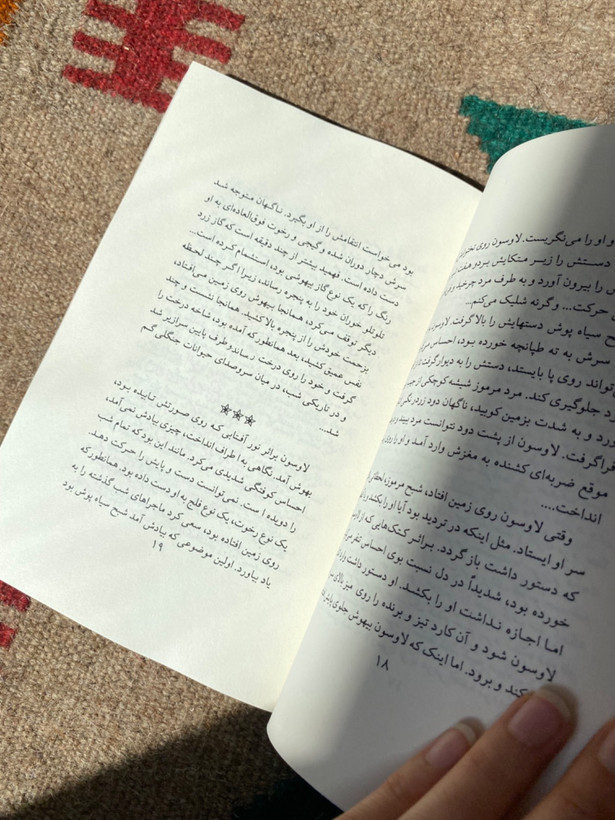 و او را می‌نگریست. لاوسون روی
دستش را زیر متکایش برد و
را بیرون آورد و به طرف مرد
حرکت... و گرنه شلیک می‌کنم...
سیاه پوش دستهایش را بالا گرفت.
سرش به ته طپانچه خورده بود، احساس
روی پا بایستد، دستش را به دیوار گرفت
جلوگیری کند. مرد مرموز شیشه کوچکی از
و به شدت بزمین کوبید، ناگهان دود زرد
فراگرفت. لاوسون از پشت دود نتوانست مرد
موقع ضربه‌ای کشنده به مغزش وارد آمد و او را روی
انداخت....
وقتی لاوسون روی زمین افتاد، شبح مرموز،
سر او ایستاد. مثل اینکه در تردید بود آیا او را بکشد
که دستور داشت باز گردد. براثر کتک‌هائی که از
خورده بود، شدیداً در دل نسبت بوی احساس
اما اجازه نداشت او را بکشد. او دستور داشت
لاوسون شود و آن کارد تیز و برنده را روی میز
کند و برود. اما اینک که لاوسون بیهوش جلوی
۱۸
بود می‌خواست انتقامش را از او بگیرد. ناگهان متوجه شد
سرش دچار دوران شده و گیجی و رخوت فوق‌العاده‌ای به او
دست داده است. فهمید بیشتر از چند دقیقه است که گاز زرد
رنگ را که یک نوع گاز بیهوشی بود، استشمام کرده است...
تلوتلو خوران خود را به پنجره رساند، زیرا اگر چند لحظه
دیگر توقف می‌کرد، همانجا بیهوش روی زمین می‌افتاد،
بزحمت خودش را از پنجره بالا کشید. همانجا نشست و چند
نفس عمیق کشید، بعد همانطور که آمده بود شاخه درخت را
گرفت و خود را روی درخت رساند و طرف پایین سرازیر شد
و در تاریکی شب، در میان سروصدای حیوانات جنگلی گم
شد...
***
لاوسون براثر نور آفتابی که روی صورتش تابیده بود،
بهوش آمد. نگاهی به اطراف انداخت، چیزی یادش نمی‌آمد،
احساس کوفتگی شدیدی می‌کرد. مانند این بود که تمام شب
را دویده است. نمی‌توانست دست و پایش را حرکت دهد.
یک نوع رخوت، یک نوع فلج به او دست داده بود. همانطور که
روی زمین افتاده بود، سعی کرد ماجراهای شب گذشته را به
یاد بیاورد. اولین موضوعی که بیادش آمد شبح سیاه پوش بود
۱۹